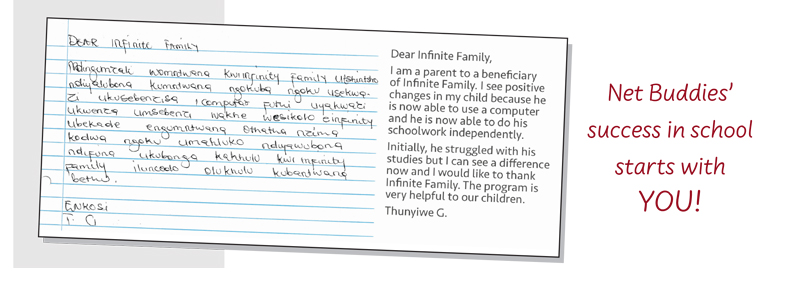 DEAR Infinite Family
Ndingumzali womntwana kwiinfinity family utshintsho
ndiyalubona kumntwana ngokuba ngoku usekwa-
zi ukusebenzisa icomputer futhi uyakwazi
ukwenza umsebenzi wakhe wesikolo einfinity
Ubekade engumntwana othatha nzima
kodwa ngoku umahluko ndiyawubona
ndifuna ukubonga kakhulu kwi Infinity
family iluncedo olukhulu kubantwana
bethu.
ENKOSI
T. G
Dear Infinite Family,
I am a parent to a beneficiary
of Infinite Family. I see positive
changes in my child because he
is now able to use a computer
and he is now able to do his
schoolwork independently.
Initially, he struggled with his
studies but I can see a difference
now and I would like to thank
Infinite Family. The program is
very helpful to our children.
Thunyiwe G.
Net Buddies'
success in school
starts with
YOU!